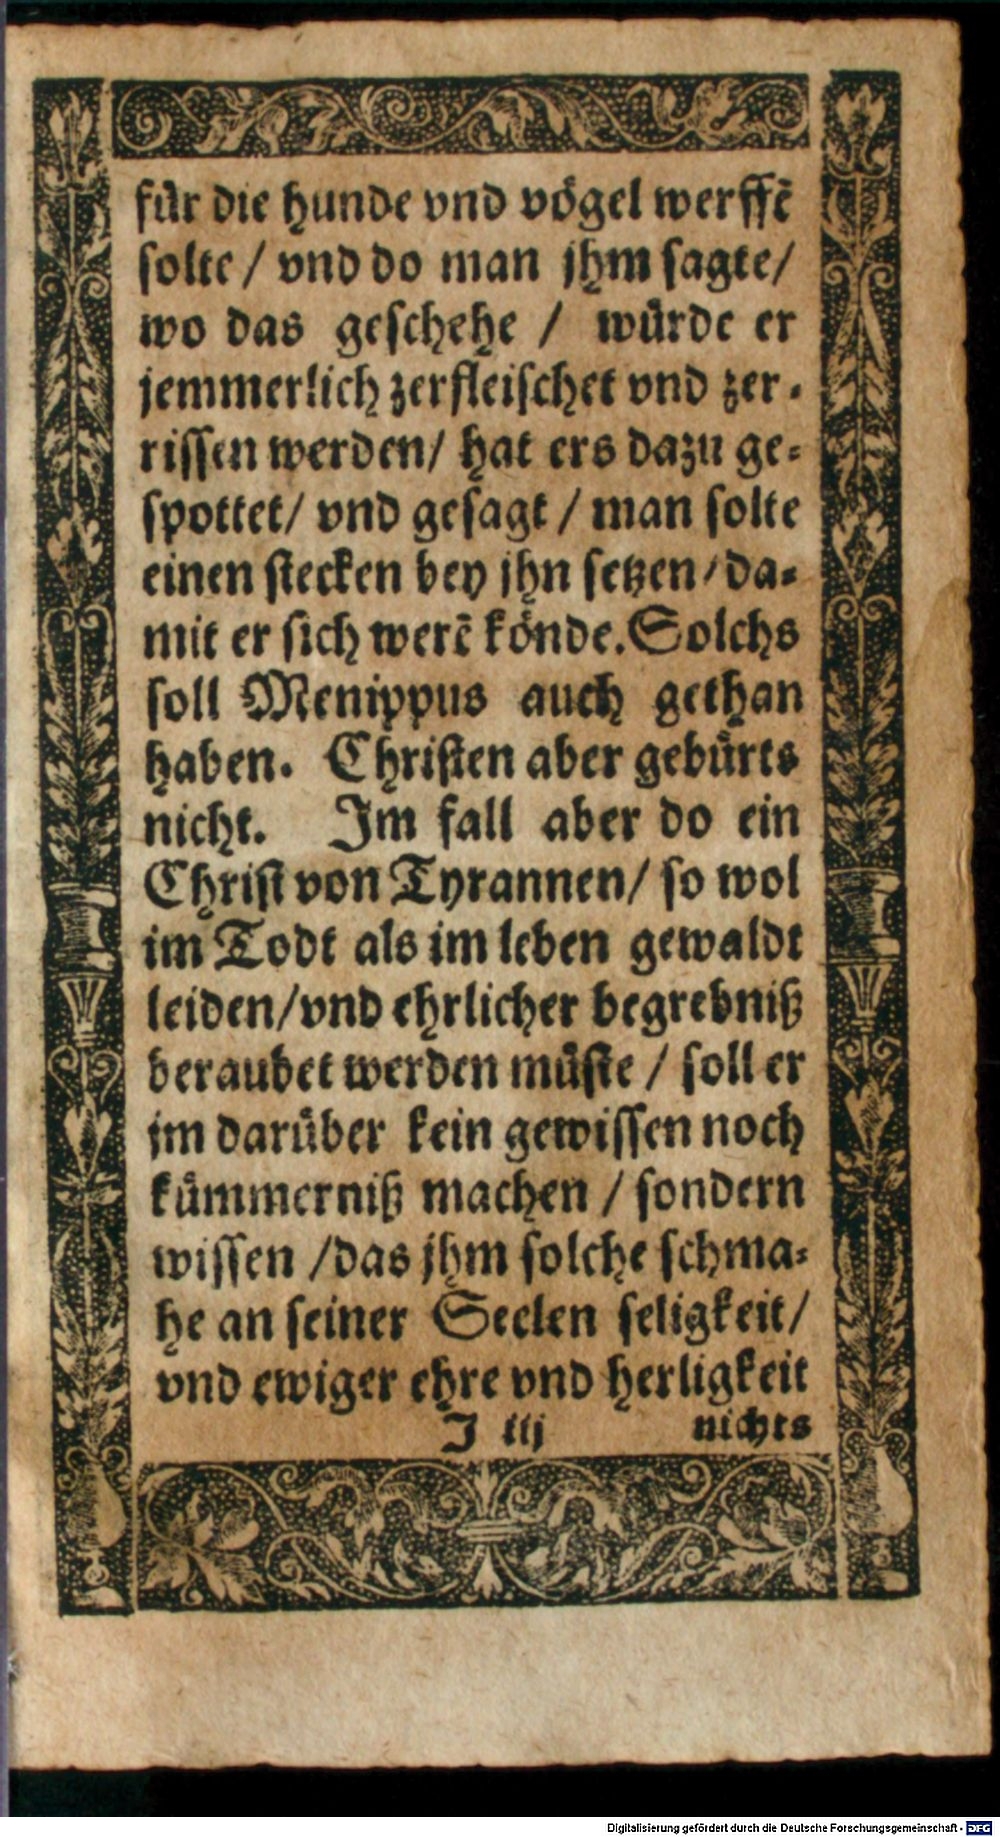 für die hunde vnd vögel werffē
solte / vnd do man jhm sagte /
wo das geschehe / würde er
jemmerlich zerfleischet vnd zer-
rissen werden / hat ers dazu ge-
spottet / vnd gesagt / man solte
einen stecken bey jhn setzen / da-
mit er sich werē könde. Solchs
soll Menippus auch gethan
haben. Christen aber gebürts
nicht. Im fall aber do ein
Christ von Tyrannen / so wol
im Todt als im leben gewaldt
leiden / vnd ehrlicher begrebniß
beraubet werden müste / soll er
jm darüber kein gewissen noch
kümmerniß machen / sondern
wissen / das jhm solche schma-
he an seiner Seelen seligkeit /
vnd ewiger ehre vnd herligkeit
J iij nichts
Digitalisierung gefördert durch die Deutsche Forschungsgemeinschaft - DFG